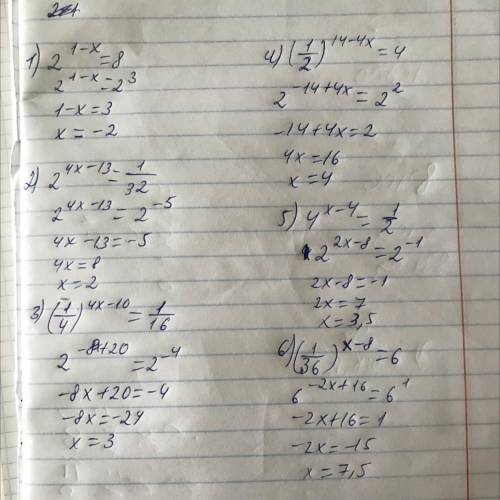 1) 2^{1-x} = 8
2^{1-x} = 2^3
1-x = 3
x = -2
2) 2^{4x-13} = \frac{1}{32}
2^{4x-13} = 2^{-5}
4x-13 = -5
4x = 8
x = 2
3) (\frac{1}{4})^{4x-10} = \frac{1}{16}
2^{-8x+20} = 2^{-4}
-8x+20 = -4
-8x = -24
x = 3
4) (\frac{1}{2})^{14-4x} = 4
2^{-14+4x} = 2^2
-14+4x = 2
4x = 16
x = 4
5) 4^{x-4} = \frac{1}{2}
2^{2x-8} = 2^{-1}
2x-8 = -1
2x = 7
x = 3,5
6) (\frac{1}{36})^{x-8} = 6
6^{-2x+16} = 6^1
-2x+16 = 1
-2x = -15
x = 7,5